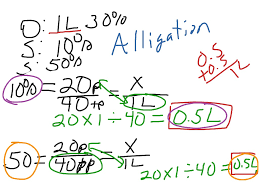 O: 1L 30%
S: 10%
S: 50%
Alligation
0.5
+0.5
1L
10% = 20p/40p = X/1L
20 x 1 ÷ 40 = 0.5L
50 = 20p/40p = X/1L
20 x 1 ÷ 40 = 0.5L